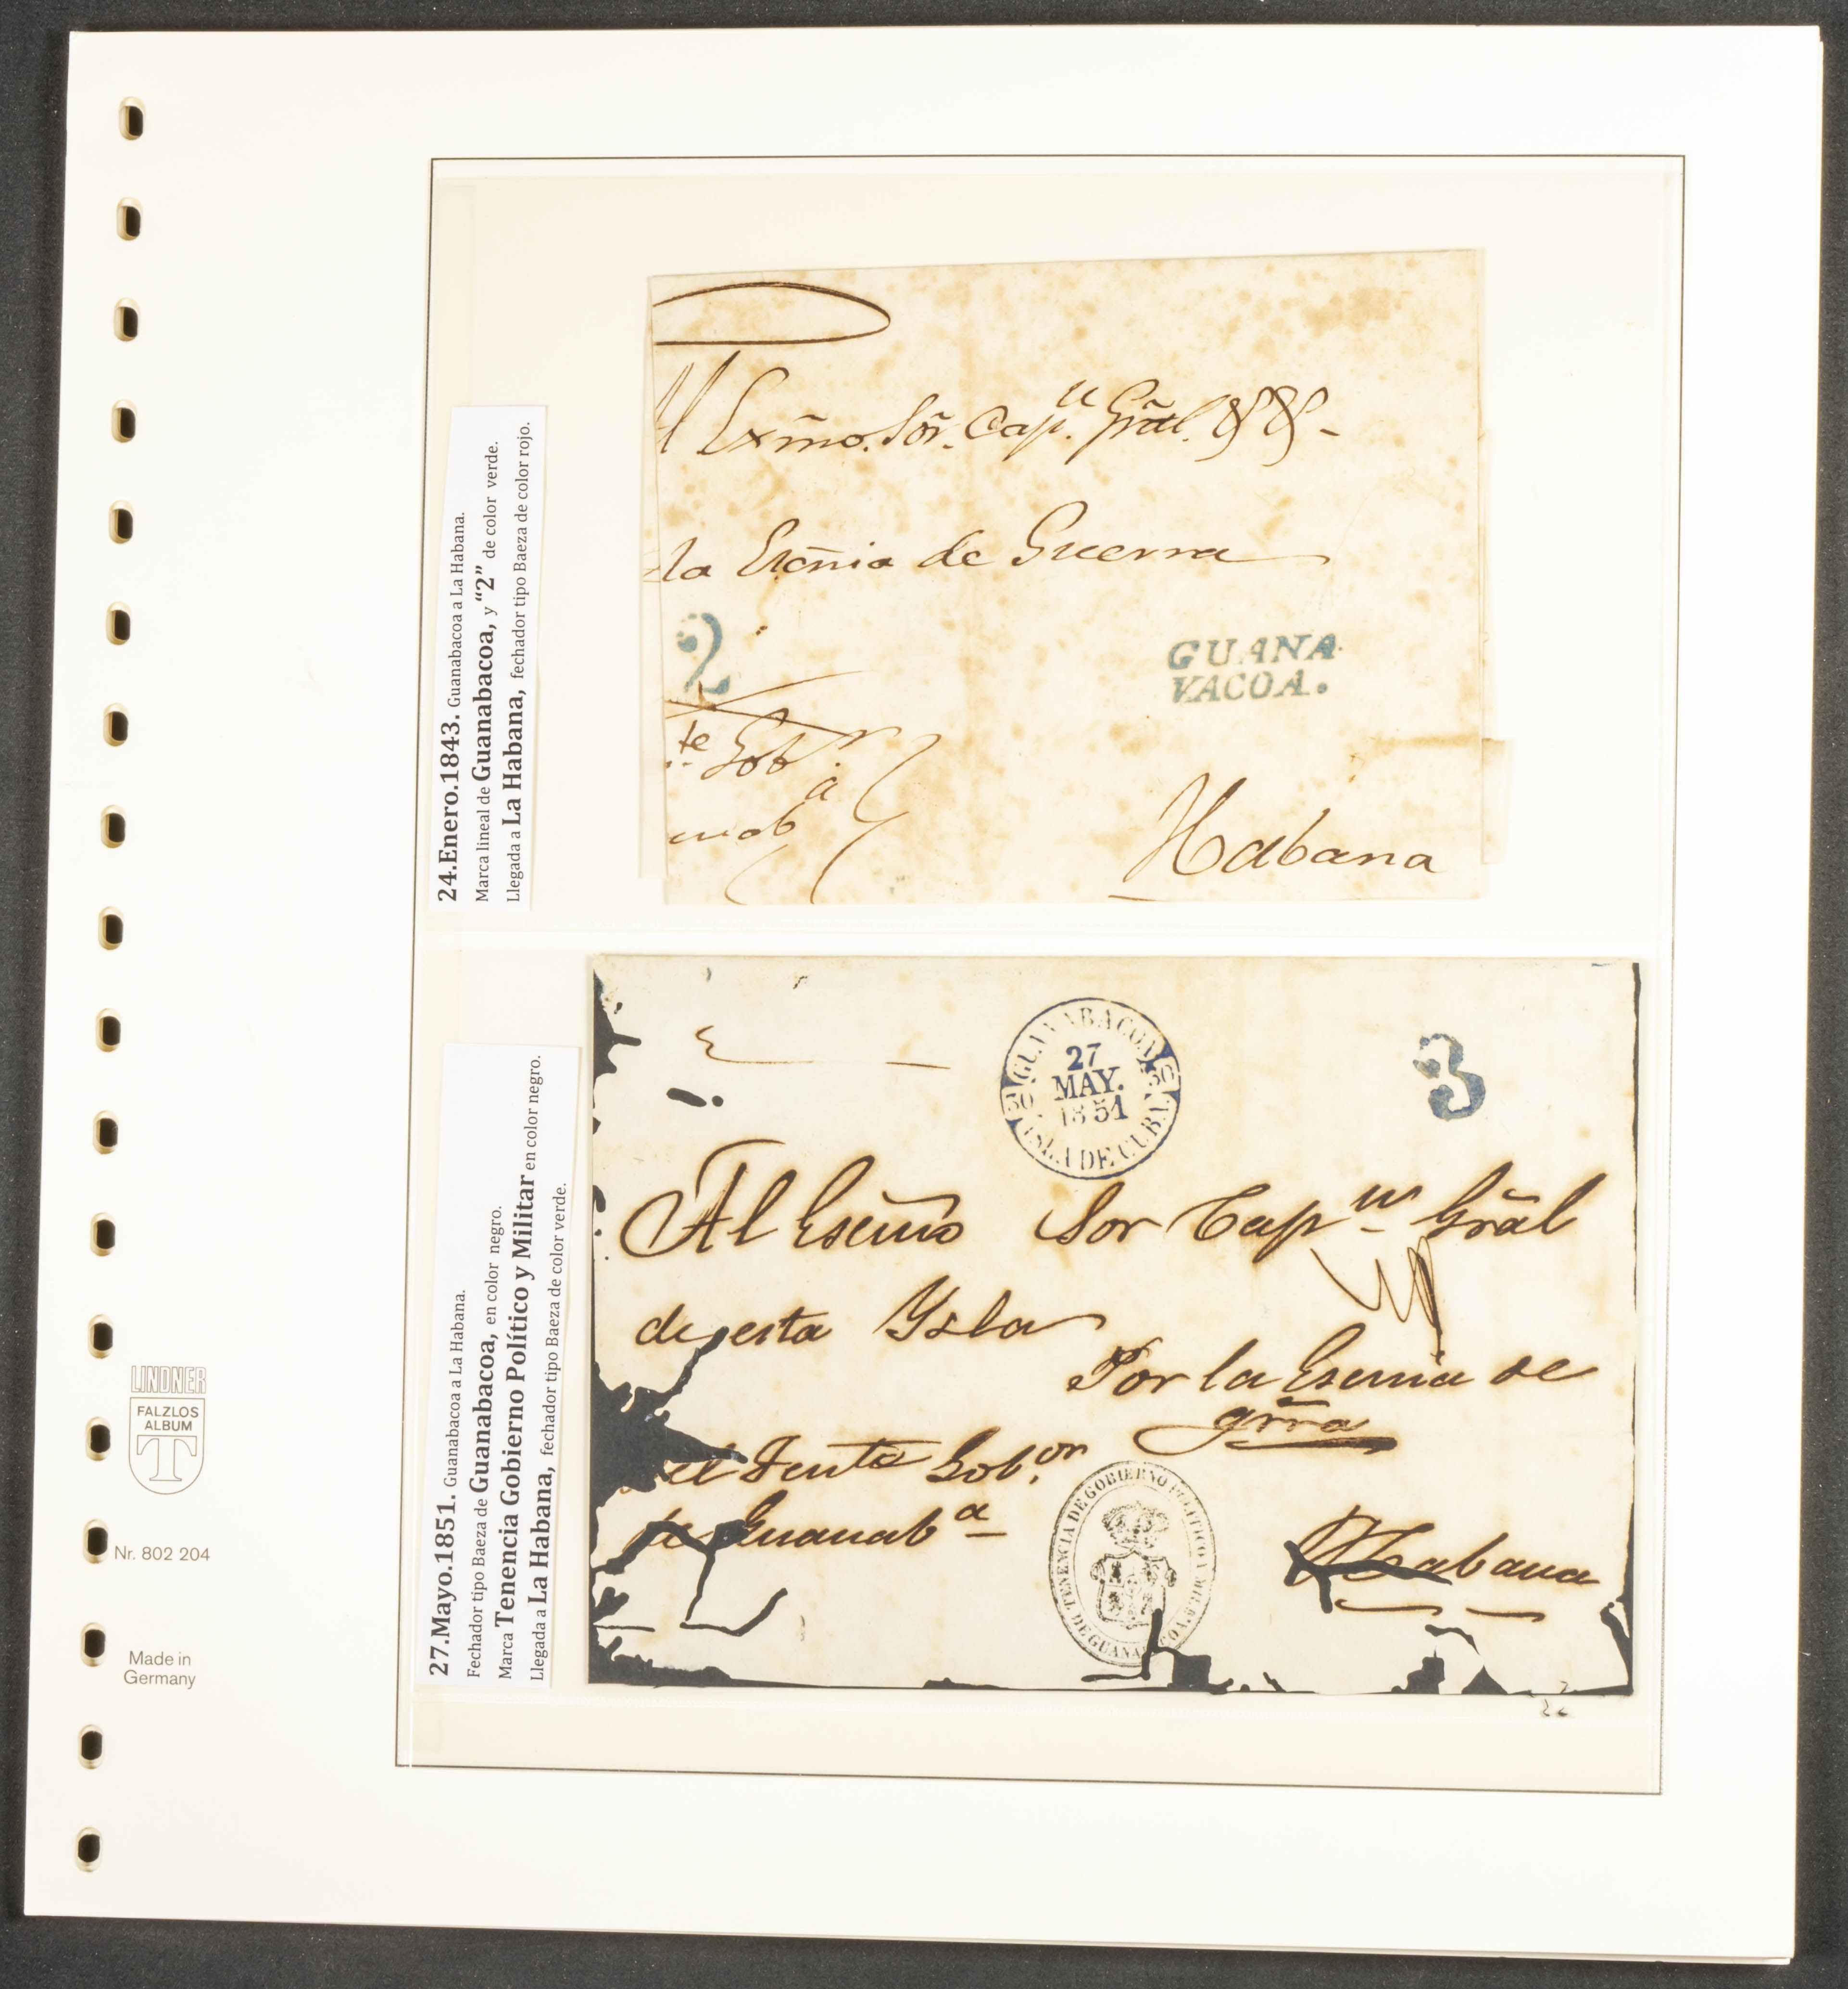 24.Enero.1843. Guanabacoa a La Habana.
Marca lineal de Guanabacoa, y “2” de color verde.
Llegada a La Habana, fechador tipo Baeza de color rojo.
Al Exm̃o. Sõr. Cap.n Grãl.
la Escñia de Guerra
2
GUANA
VACOA.
te Gobr.
nab a
Habana
27.Mayo.1851. Guanabacoa a La Habana.
Fechador tipo Baeza de Guanabacoa, en color negro.
Marca Tenencia Gobierno Político y Militar en color negro.
Llegada a La Habana, fechador tipo Baeza de color verde.
GUANABACOA
27
MAY.
1851
30 30
ISLA DE CUBA.
3
Al Escmõ Sor Capn Grãl
de esta Ysla
Por la Escnia de
grra
el Tente Gob.or
de Guanaba
TENENCIA DE GOBIERNO POLITICO Y MILITAR
DE GUANABACOA
Habana
LINDNER
FALZLOS
ALBUM
T
Nr. 802 204
Made in
Germany